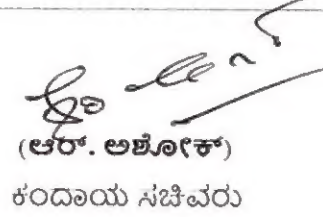 (ಆರ್. ಅಶೋಕ್)
ಕಂದಾಯ ಸಚಿವರು